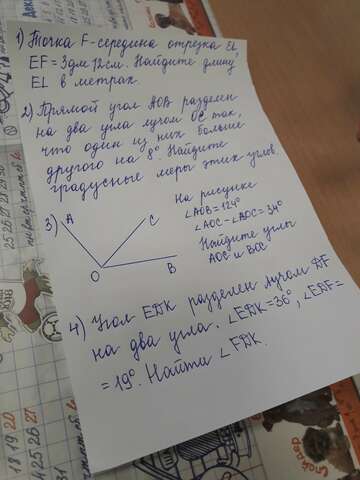 1) Точка F-середина отрезка EL,
EF=3дм 12см. Найдите длину
EL в метрах.
2) Прямой угол AOB разделен
на два угла лучом OC так,
что один из них больше
другого на 8°. Найдите
градусные меры этих углов.
3) A C B O
На рисунке
∠AOB=124°
∠AOC-∠AOC=34°
Найдите углы
AOC и BOC
4) Угол EDK разделен лучом DF
на два угла. ∠EDK=36°, ∠EDF=
=19°. Найти ∠FDK.
25 26 27 28 29 30
18 19 20
24 25 26 27
31